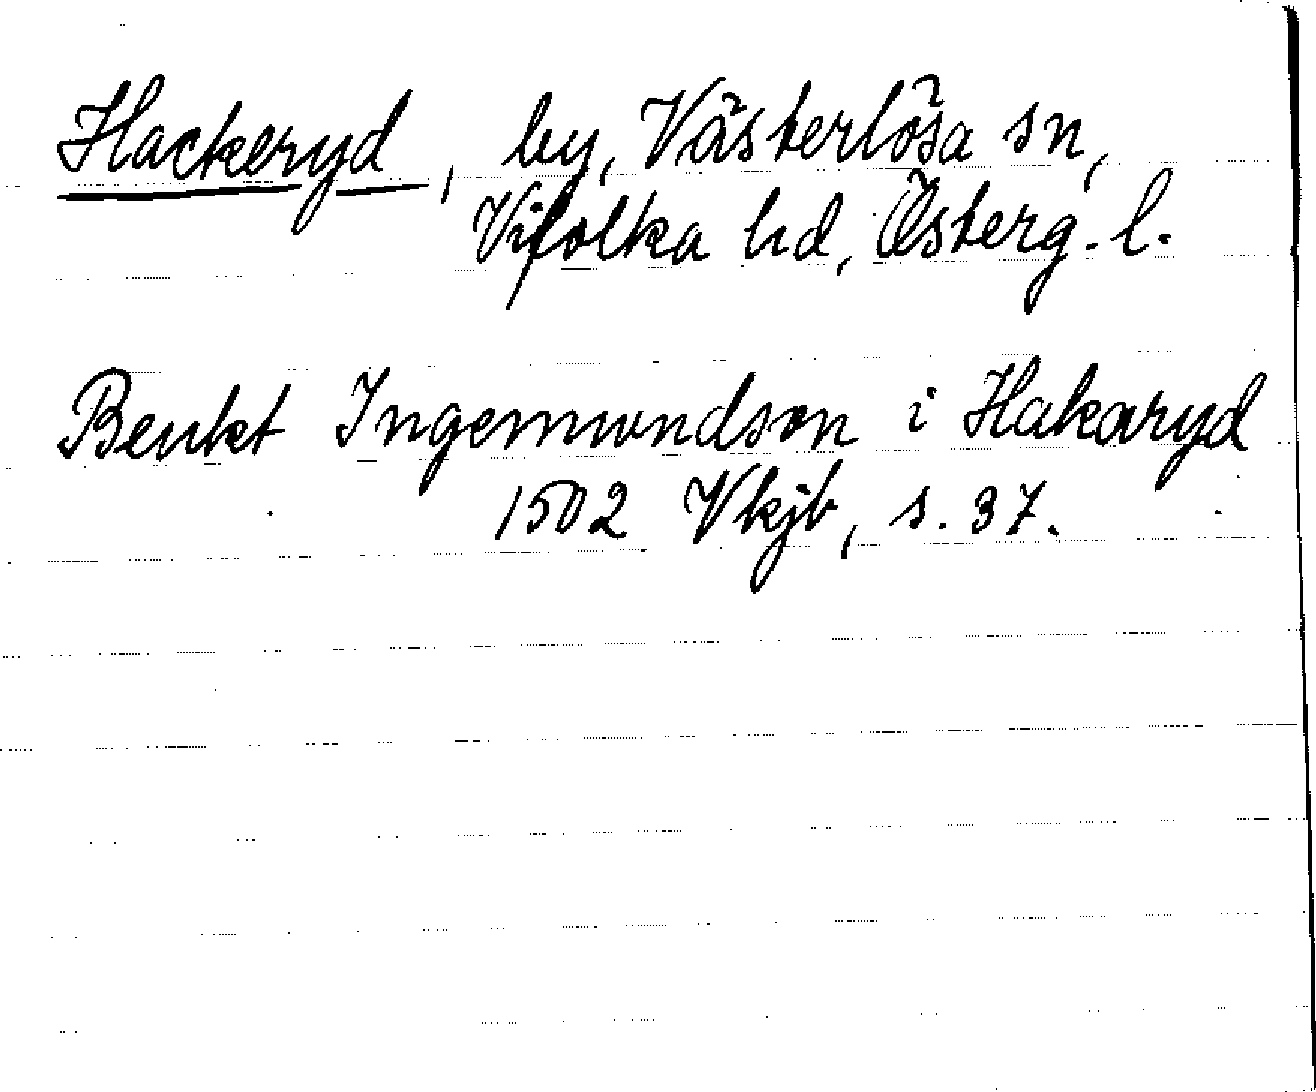 Hackeryd, by, Västerlösa sn,
Vifolka hd, Österg. l.
Benkt Ingemundson i Hakaryd
1502 Vkjb, s. 37.